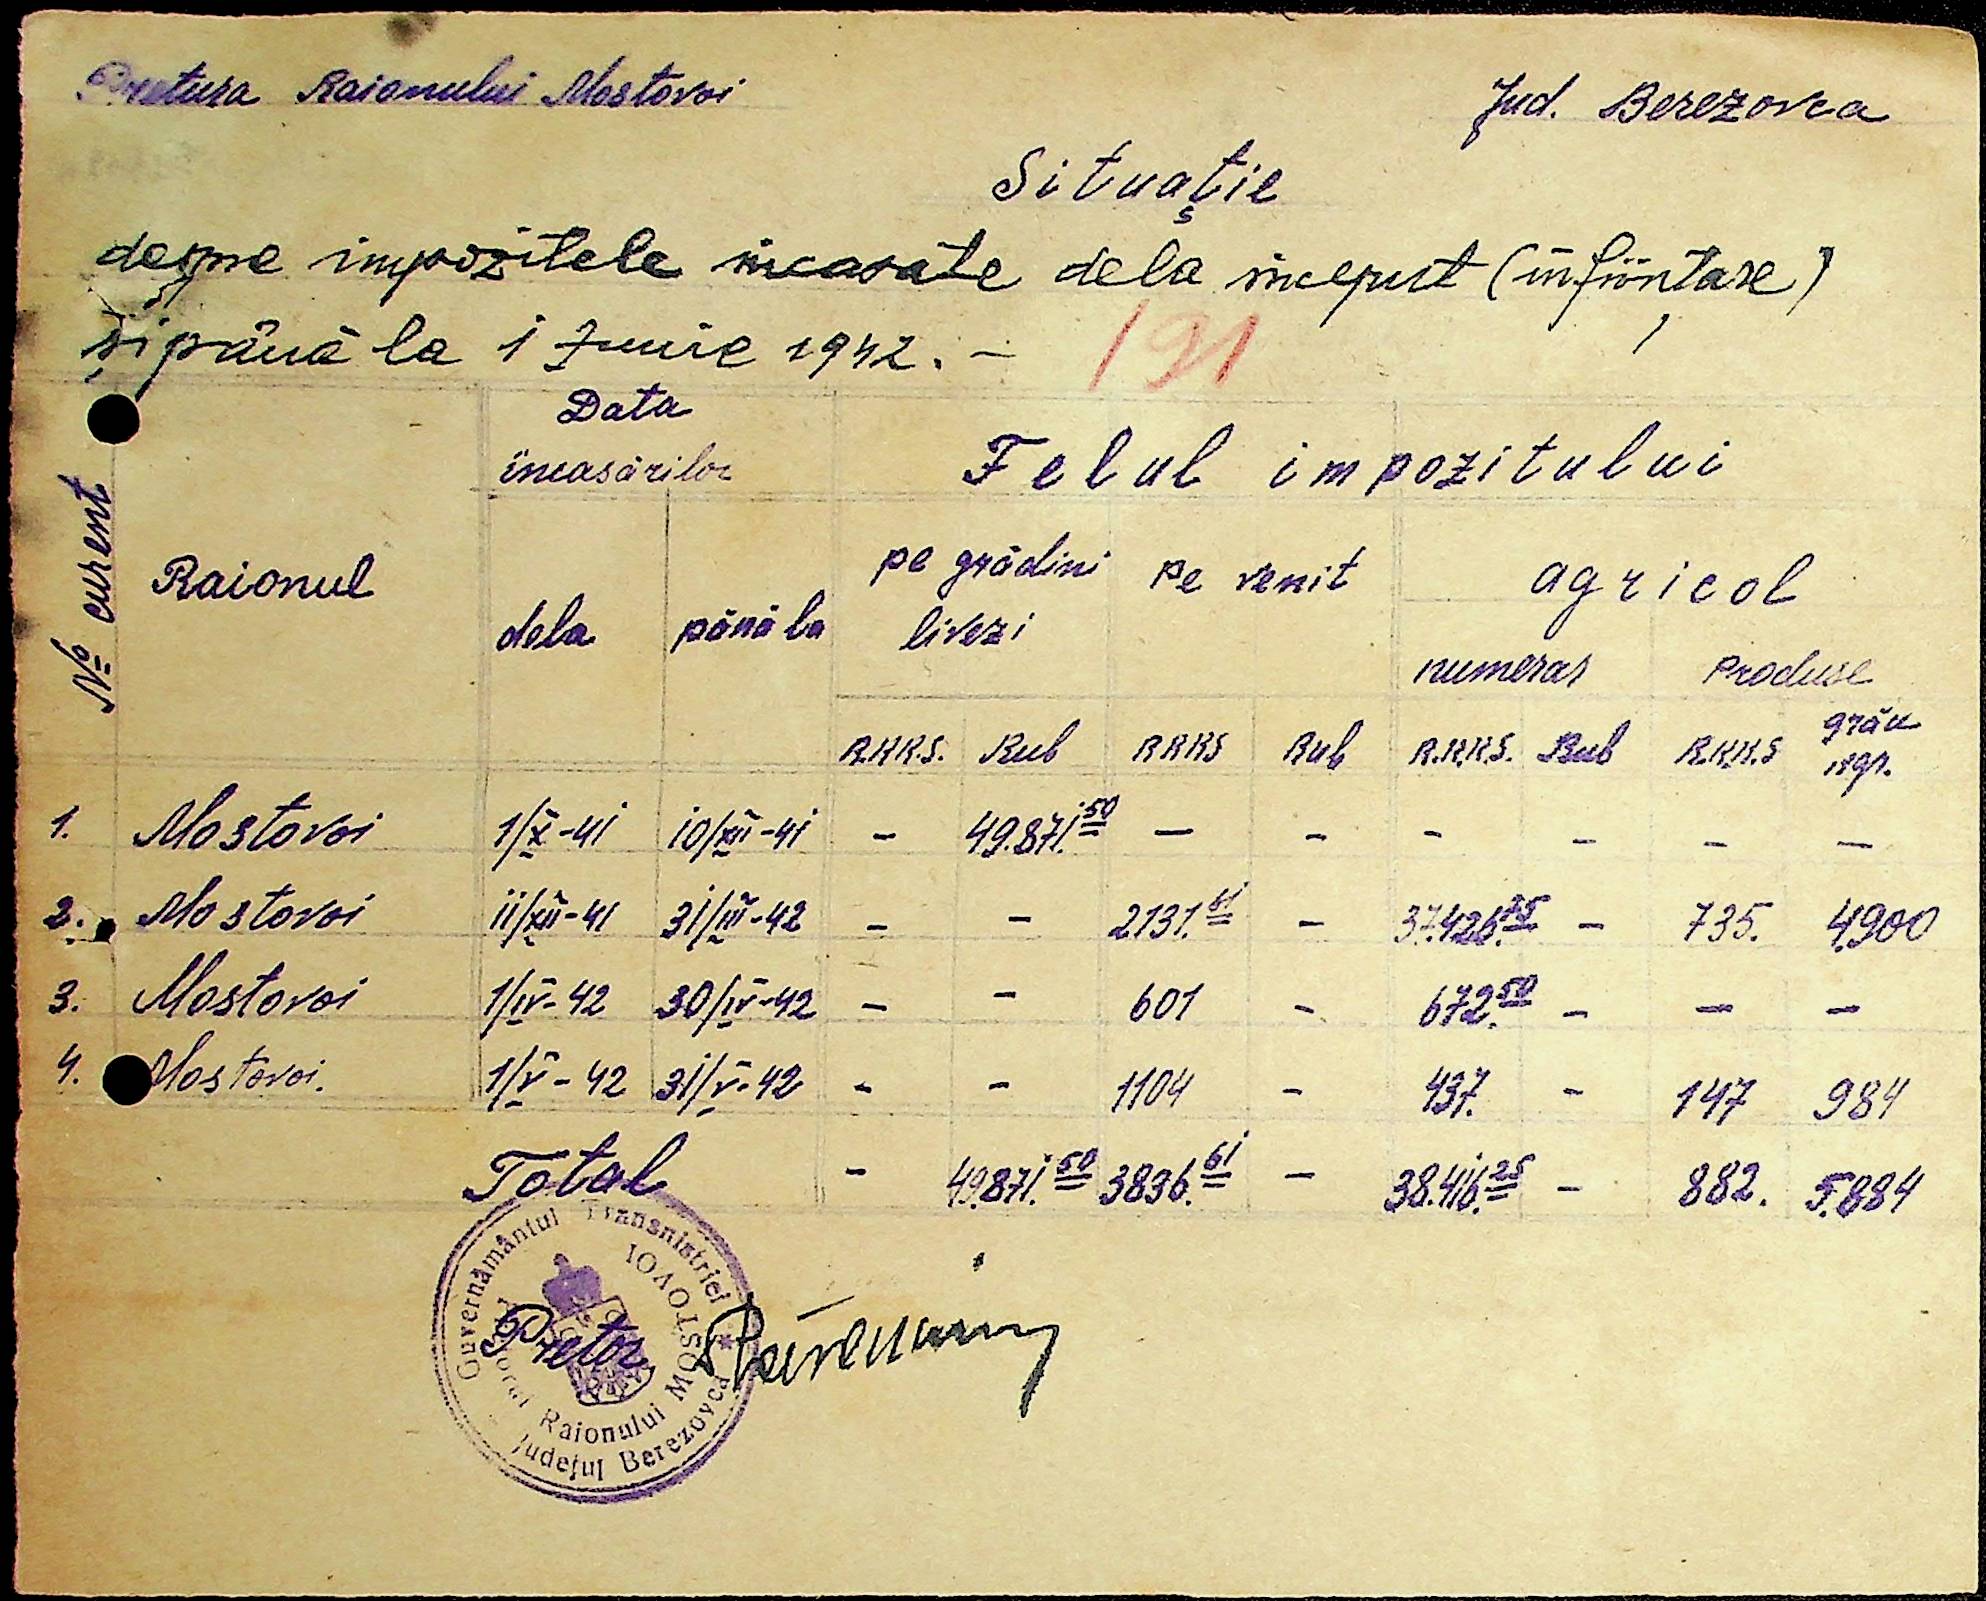 Pretura Raionului Mostovoi
Jud. Berezovca
Situație
despre impozitele incasate dela inceput (înființare)
și până la 1 Iunie 1942. –
191
No curent
Raionul
Data încasărilor
Felul impozitului
dela
până la
pe grădini livezi
pe venit
agricol
numerar
produse
R.K.K.S. Rub RKKS Rub R.K.K.S. Rub R.K.K.S grău kgr.
1. Mostovoi 1/X-41 10/XII-41 – 49.871.50 – – – – – –
2. Mostovoi 11/XII-41 31/III-42 – – 2131.61 – 37.426.75 – 735. 4900
3. Mostovoi 1/IV-42 30/IV-42 – – 601 – 672.50 – – –
4. Mostovoi. 1/V-42 31/V-42 – – 1104 – 437. – 147 984
Total – 49.871.50 3836.61 – 38.416.25 – 882. 5.884
Guvernământul Transnistriei * Județul Berezovca
Pretorul Raionului MOSTOVOI
Pretor